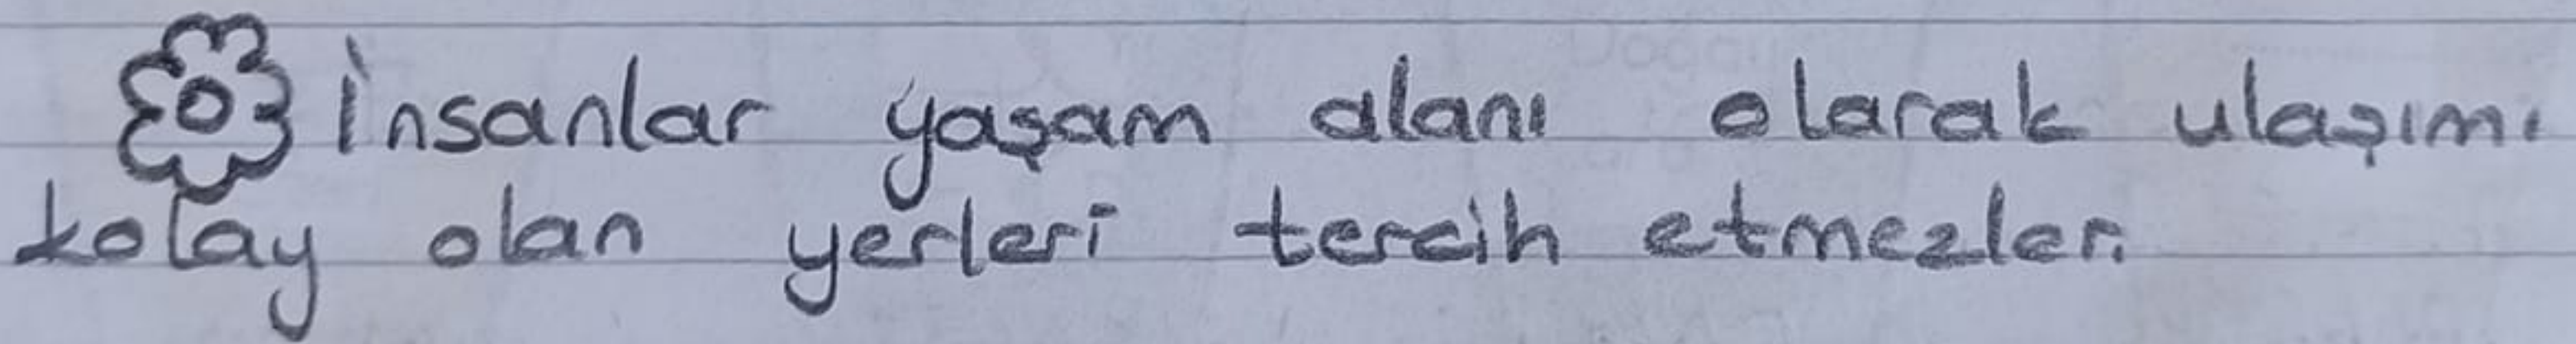 İnsanlar yaşam alanı olarak ulaşımı
kolay olan yerleri tercih etmezler.